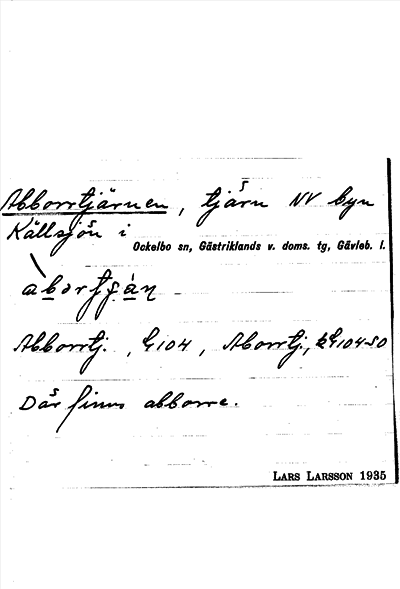 Abborrtjärnen, tjärn NV byn
Källsjön i
Ockelbo sn, Gästriklands v. doms. tg, Gävleb. l.
Abborrtj., G104, Aborrtj.,
Där finns abborre.
LARS LARSSON 1935